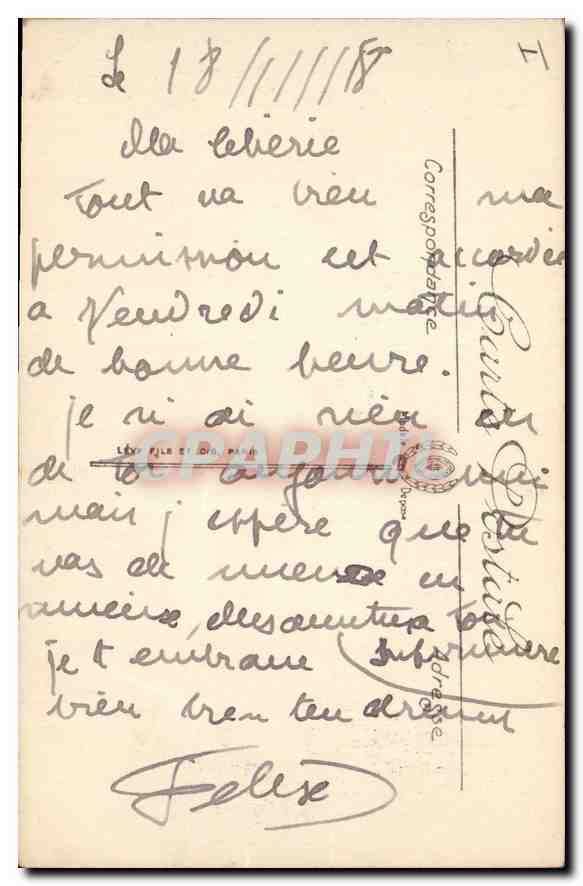 I
Le 18/////18
Ma chérie
Tout va bien ma
permission est accordée
a Vendredi matin
de bonne heure.
je n'ai rien eu
de toi aujourd'hui
mais j espère que tu
vas de mieux en
mieux,
je t embrasse
bien bien tendrement
Felix
Carte Postale
Correspondance
Adresse
LÉVY FILS ET CIE, PARIS
CPAPHIL